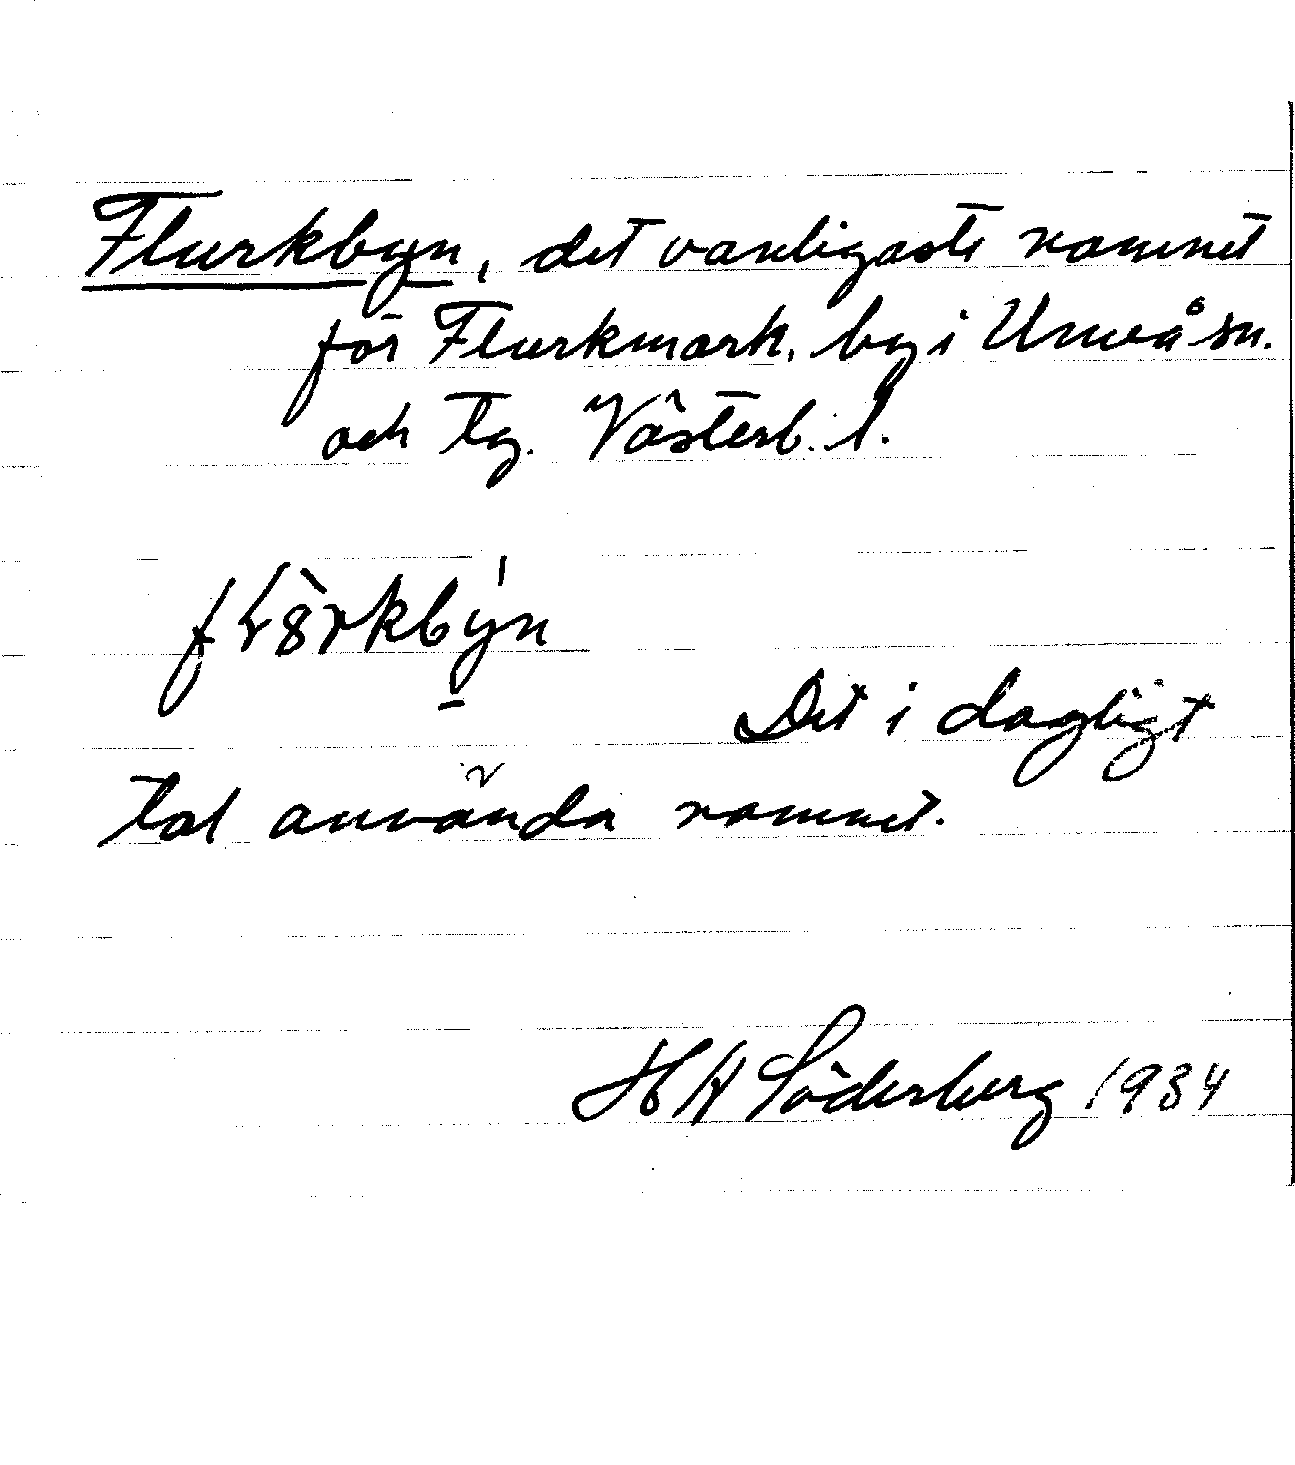 Flurkbyn, det vanligaste namnet
för Flurkmark, by i Umeå sn.
och tg. Västerb. l.
Det i dagligt
tal använda namnet.
H A Söderberg 1984